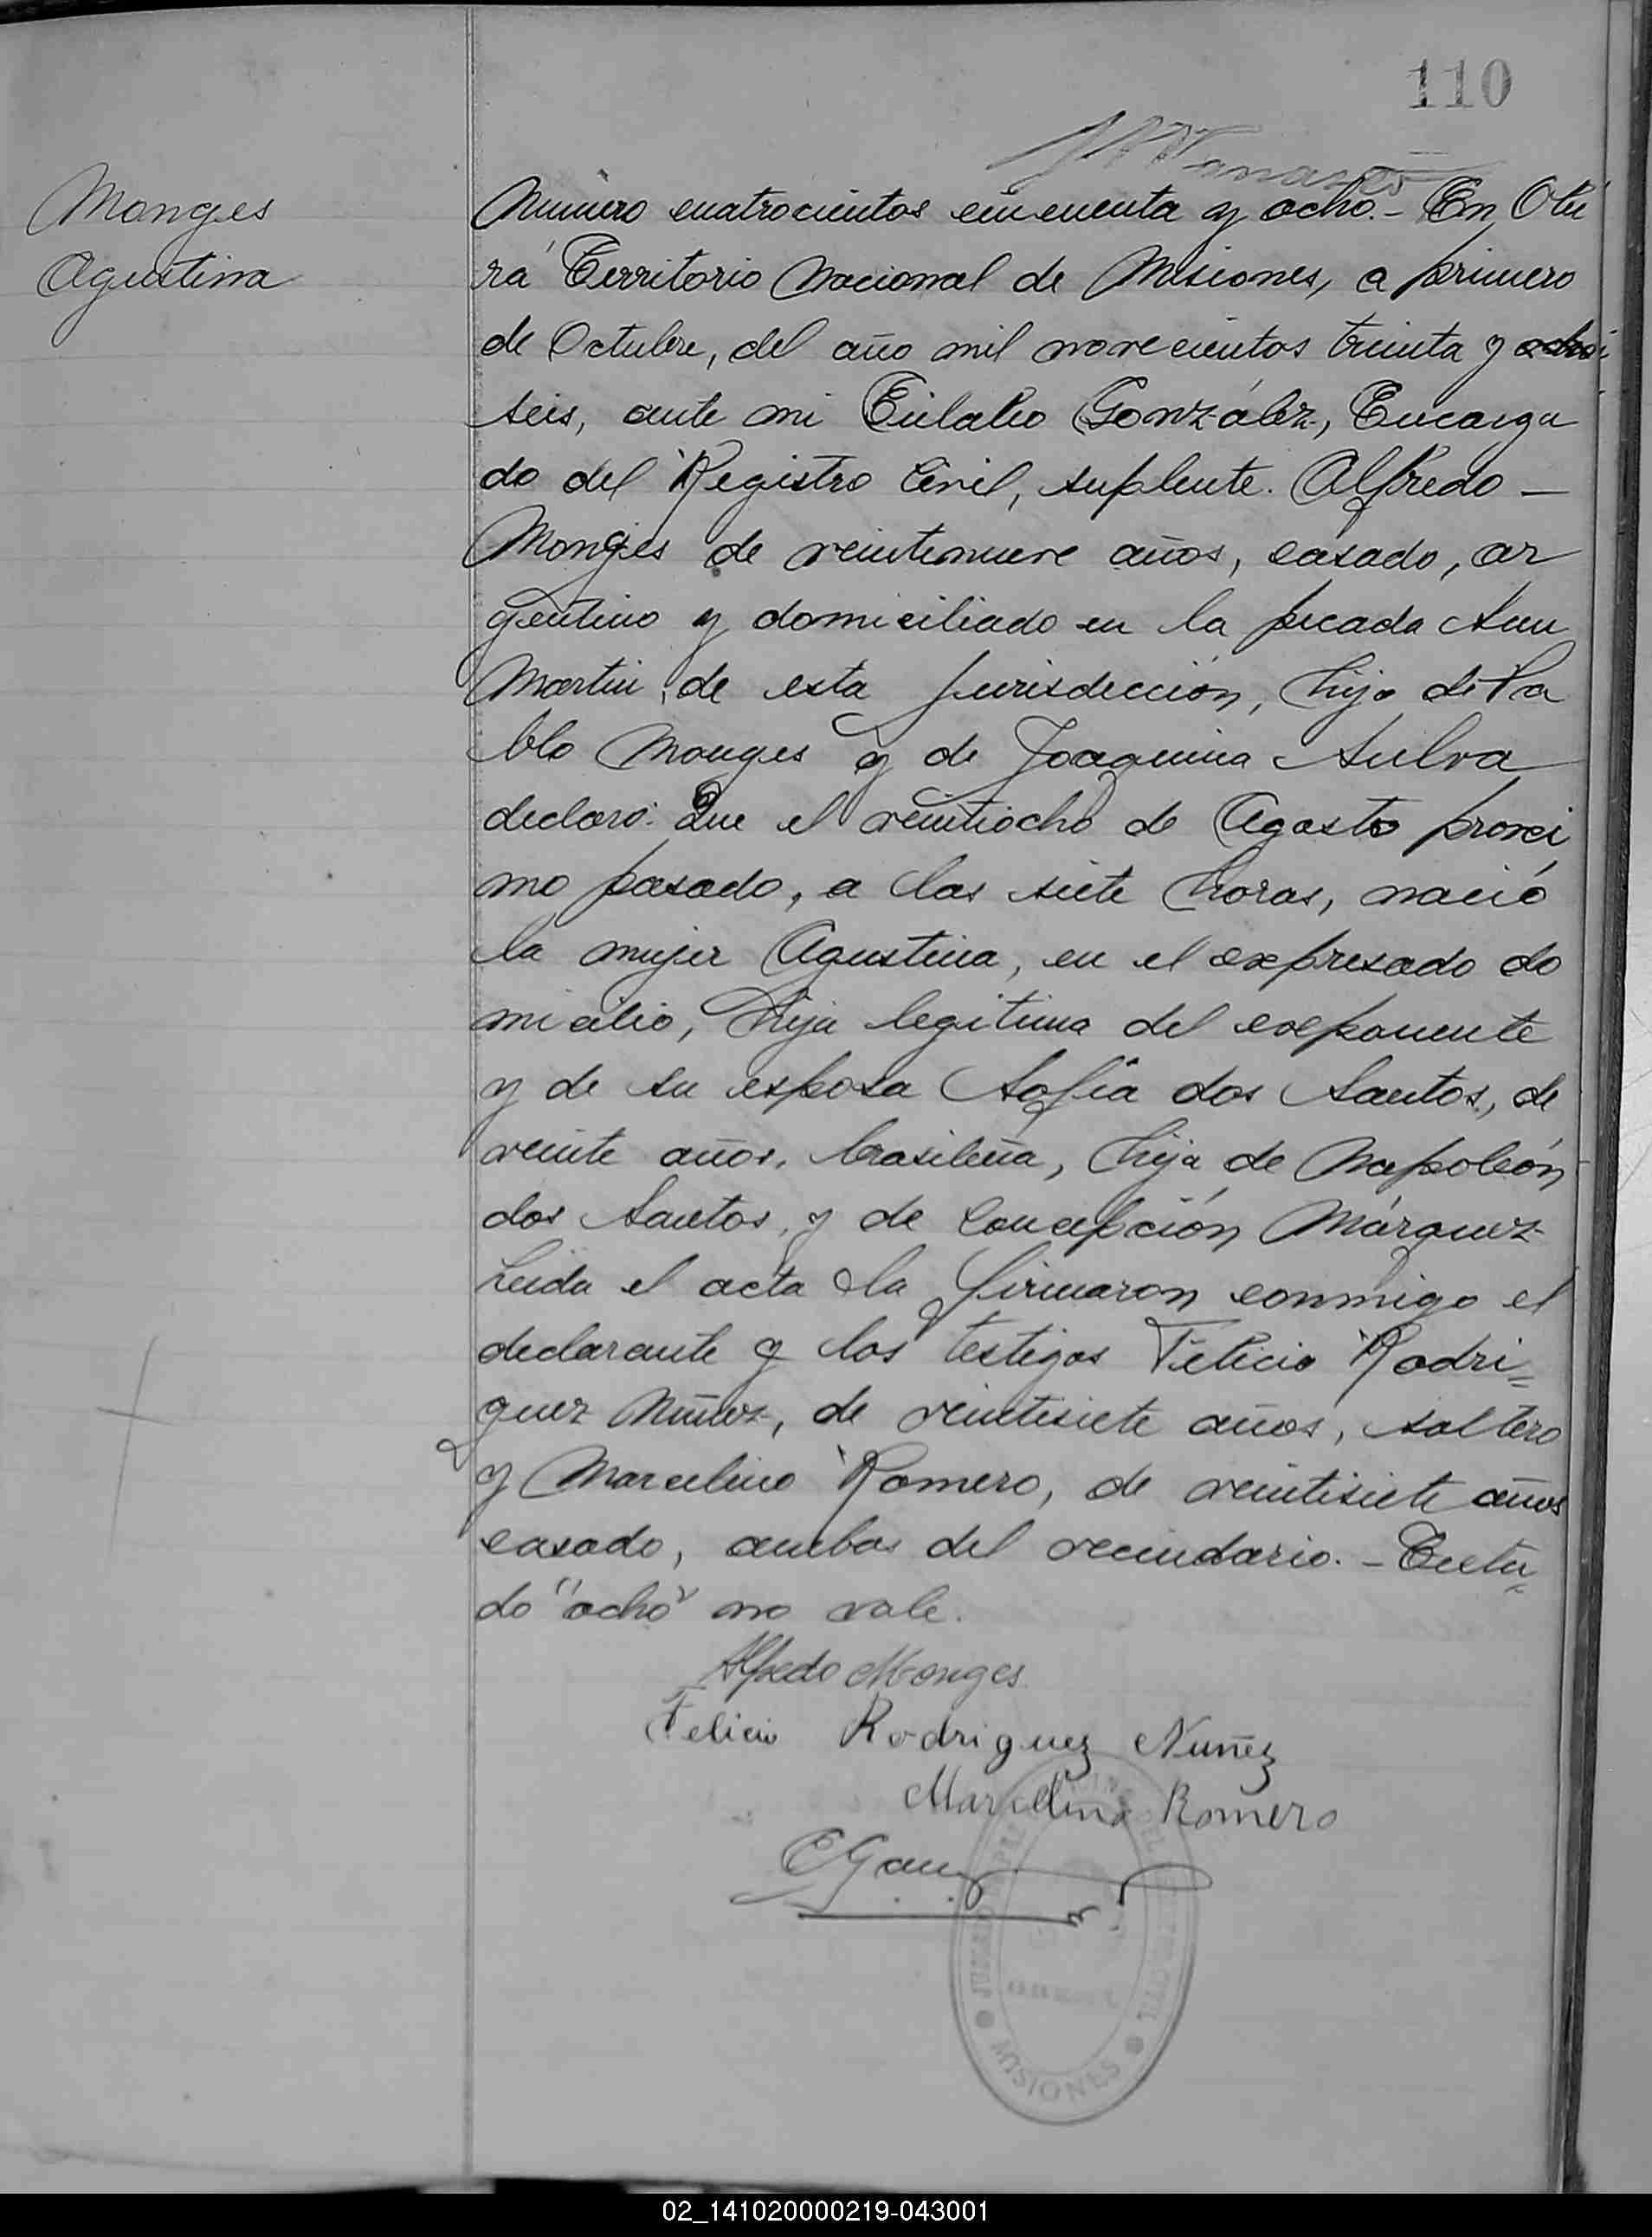 110
Monges
Agustina
Numero cuatrocientos cincuenta y ocho.- En Otú
rá Territorio Nacional de Misiones, a primero
de Octubre, del año mil novecientos treinta y ocho
seis, ante mi Eulalio González, Encarga
do del Registro Civil, suplente. Alfredo —
Monges de veintinueve años, casado, ar
gentino y domiciliado en la picada San
Martin, de esta jurisdicción, hijo de Pa
blo Monges y de Joaquina Silva
declaró: Que el veintiocho de Agosto proxi
mo pasado, a las siete horas, nació
la mujer Agustina, en el expresado do
micilio, hija legitima del exponente
y de su esposa Sofía dos Santos, de
veinte años, brasileña, hija de Napoleón
dos Santos, y de Concepción Márquez
Leida el acta la firmaron conmigo el
declarante y los testigos Felicio Rodri=
guez Nuñez, de veintisiete años, soltero
y Marcelino Romero, de veintisiete años
casado, ambos del vecindario.- Testa=
do "ocho" no vale.
Alfredo Monges
Felicio Rodriguez Nuñez
Marcelino Romero
EGonz
MISIONES
02_141020000219-043001